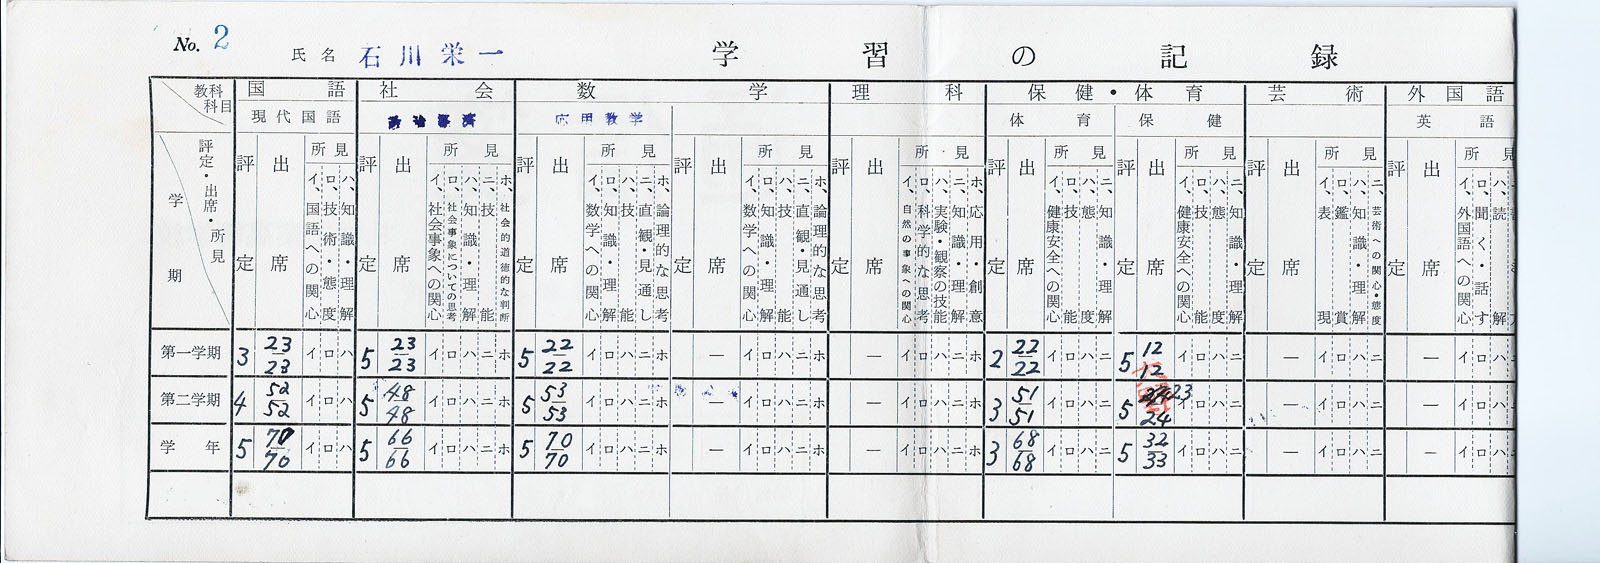 No. 2 氏名 石川栄一 学習の記録
教科 科目 国語 社会 数学 理科 保健・体育 芸術 外国語
現代国語 政治経済 応用数学 体育 保健 英語
評定・出席・所見
学期
評定 出席 所見 イ、国語への関心 ロ、技術・態度 ハ、知識・理解
評定 出席 所見 イ、社会事象への関心 ロ、社会事象についての思考 ハ、知識・理解 ニ、技能 ホ、社会的道徳的な判断
評定 出席 所見 イ、数学への関心 ロ、知識・理解 ハ、技能 ニ、直観・見通し ホ、論理的な思考
評定 出席 所見 イ、数学への関心 ロ、知識・理解 ハ、技能 ニ、直観・見通し ホ、論理的な思考
評定 出席 所見 イ、自然の事象への関心 ロ、科学的な思考 ハ、実験・観察の技能 ニ、知識・理解 ホ、応用・創意
評定 出席 所見 イ、健康安全への関心 ロ、技能 ハ、態度 ニ、知識・理解
評定 出席 所見 イ、健康安全への関心 ロ、技能 ハ、態度 ニ、知識・理解
評定 出席 所見 イ、表現 ロ、鑑賞 ハ、知識・理解 ニ、芸術への関心・態度
評定 出席 所見 イ、外国語への関心 ロ、聞く・話す ハ、読解
第一学期 3 23/23 イロハ 5 23/23 イロハニホ 5 22/22 イロハニホ — イロハニホ — イロハニホ 2 22/22 イロハニ 5 12/12 イロハニ — イロハニ — イロハ
第二学期 4 52/52 イロハ 5 48/48 イロハニホ 5 53/53 イロハニホ — イロハニホ — イロハニホ 3 51/51 イロハニ 5 23/24 イロハニ — イロハニ — イロハ
学年 5 70/70 イロハ 5 66/66 イロハニホ 5 70/70 イロハニホ — イロハニホ — イロハニホ 3 68/68 イロハニ 5 32/33 イロハニ — イロハニ — イロハ